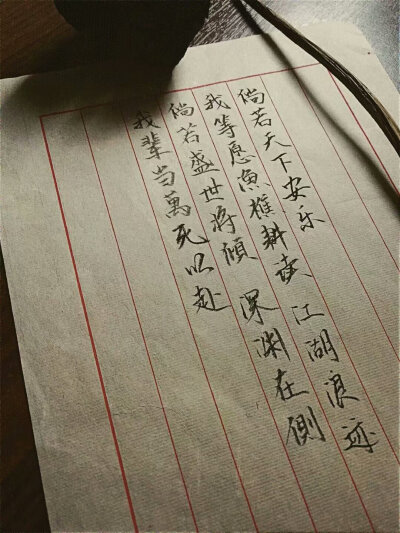 倘若天下安乐
我等愿渔樵耕读 江湖浪迹
倘若盛世将倾 深渊在側
我輩当萬死以赴